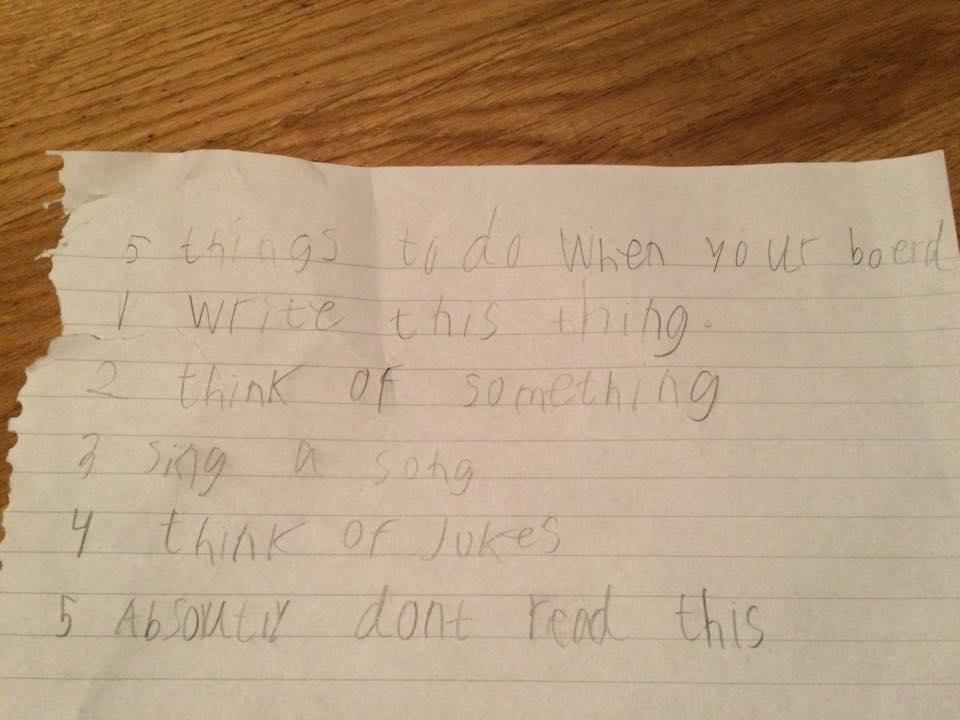 5 things to do when your boerd
1 write this thing.
2 think of something
3 sing a song
4 think of Jokes
5 Absoutly dont read this